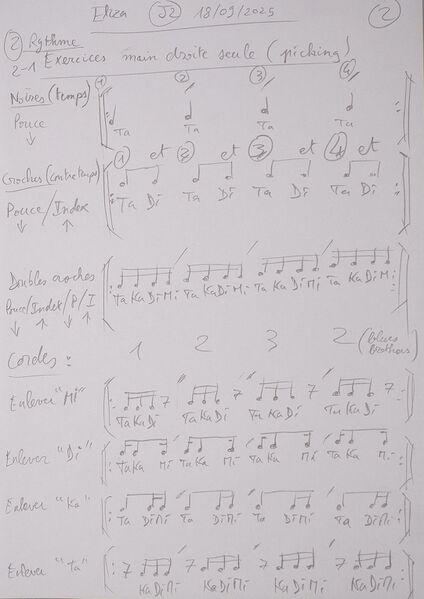 Eliza J2 18/09/2025 2
2 Rythme
2-1 Exercices main droite seule (picking)
1 2 3 4
Noires (temps)
Pouce Ta Ta Ta Ta
↓
1 et 2 et 3 et 4 et
Croches (contretemps)
Pouce/Index Ta Di Ta Di Ta Di Ta Di
↓ ↑
Doubles croches Ta Ka Di Mi Ta Ka Di Mi Ta Ka Di Mi Ta Ka Di Mi
Pouce/Index/P/I
↓ ↑ ↓ ↑
Cordes : 1 2 3 2 (Blues Brothers)
Enlever "Mi" 7 7 7 7
Ta Ka Di Ta Ka Di Ta Ka Di Ta Ka Di
Enlever "Di" Ta Ka Mi Ta Ka Mi Ta Ka Mi Ta Ka Mi
Enlever "Ka" Ta Di Mi Ta Di Mi Ta Di Mi Ta Di Mi
Enlever "Ta" 7 7 7 7
Ka Di Mi Ka Di Mi Ka Di Mi Ka Di Mi